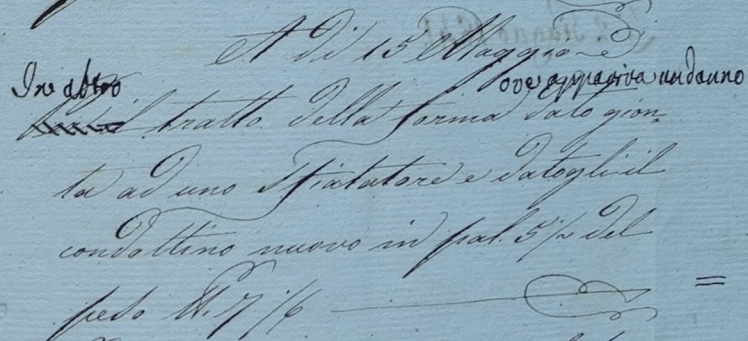 A dì 15 Maggio d.º
In altro ove appariva un danno
tratto della forma dato gion-
ta ad uno Sfiatatore e datogli il
condottino nuovo in pal. 5½ del
peso lb. 7 /6 =